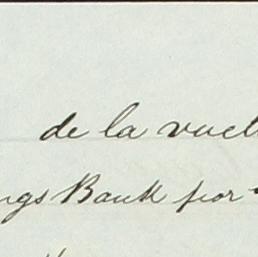 de la vuel
ngs Bank por